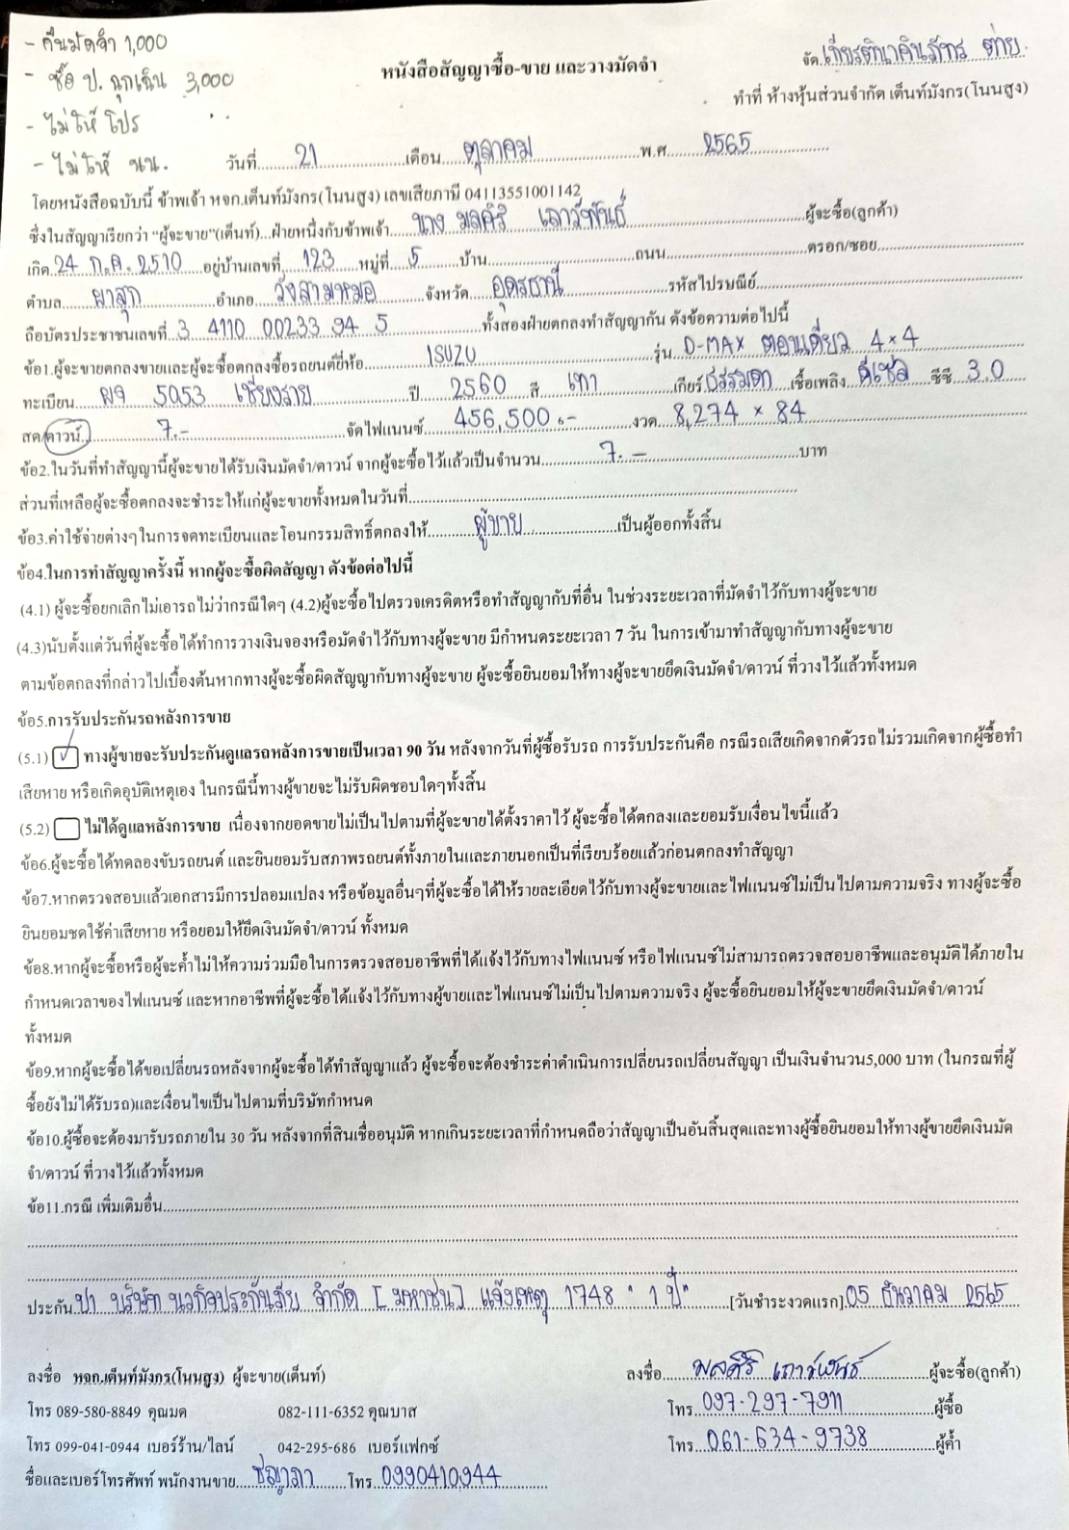 - คืนมัดจำ 1,000
- ซื้อ ป. ฉุกเฉิน 3,000
- ไม่ให้ โปร
- ไม่ให้ นน.
จัด เกียรตินาคินภัทร ต่าย
หนังสือสัญญาซื้อ-ขาย และวางมัดจำ
ทำที่ ห้างหุ้นส่วนจำกัด เต็นท์มังกร(โนนสูง)
วันที่ 21 เดือน ตุลาคม พ.ศ. 2565
โดยหนังสือฉบับนี้ ข้าพเจ้า หจก.เต็นท์มังกร(โนนสูง) เลขเสียภาษี 04113551001142
ซึ่งในสัญญาเรียกว่า “ผู้จะขาย”(เต็นท์)...ฝ่ายหนึ่งกับข้าพเจ้า นาง มลศิริ เถาว์พันธ์ ผู้จะซื้อ(ลูกค้า)
เกิด 24 ก.ค. 2510 อยู่บ้านเลขที่ 123 หมู่ที่ 5 บ้าน ถนน ตรอก/ซอย
ตำบล ผาสุก อำเภอ วังสามหมอ จังหวัด อุดรธานี รหัสไปรษณีย์
ถือบัตรประชาชนเลขที่ 3 4110 00233 94 5 ทั้งสองฝ่ายตกลงทำสัญญากัน ดังข้อความต่อไปนี้
ข้อ1.ผู้จะขายตกลงขายและผู้จะซื้อตกลงซื้อรถยนต์ยี่ห้อ ISUZU รุ่น D-MAX ตอนเดี่ยว 4×4
ทะเบียน ผจ 5053 เชียงราย ปี 2560 สี เทา เกียร์ ธรรมดา เชื้อเพลิง ดีเซล ซีซี 3.0
สด/ดาวน์ 7.- จัดไฟแนนซ์ 456,500.- งวด 8,274 × 84
ข้อ2.ในวันที่ทำสัญญานี้ผู้จะขายได้รับเงินมัดจำ/ดาวน์ จากผู้จะซื้อไว้แล้วเป็นจำนวน 7.- บาท
ส่วนที่เหลือผู้จะซื้อตกลงจะชำระให้แก่ผู้จะขายทั้งหมดในวันที่
ข้อ3.ค่าใช้จ่ายต่างๆในการจดทะเบียนและโอนกรรมสิทธิ์ตกลงให้ ผู้ขาย เป็นผู้ออกทั้งสิ้น
ข้อ4.ในการทำสัญญาครั้งนี้ หากผู้จะซื้อผิดสัญญา ดังข้อต่อไปนี้
(4.1) ผู้จะซื้อยกเลิกไม่เอารถไม่ว่ากรณีใดๆ (4.2)ผู้จะซื้อไปตรวจเครดิตหรือทำสัญญากับที่อื่น ในช่วงระยะเวลาที่มัดจำไว้กับทางผู้จะขาย
(4.3)นับตั้งแต่วันที่ผู้จะซื้อได้ทำการวางเงินจองหรือมัดจำไว้กับทางผู้จะขาย มีกำหนดระยะเวลา 7 วัน ในการเข้ามาทำสัญญากับทางผู้จะขาย
ตามข้อตกลงที่กล่าวไปเบื้องต้นหากทางผู้จะซื้อผิดสัญญากับทางผู้จะขาย ผู้จะซื้อยินยอมให้ทางผู้จะขายยึดเงินมัดจำ/ดาวน์ ที่วางไว้แล้วทั้งหมด
ข้อ5.การรับประกันรถหลังการขาย
(5.1) ✓ ทางผู้ขายจะรับประกันดูแลรถหลังการขายเป็นเวลา 90 วัน หลังจากวันที่ผู้ซื้อรับรถ การรับประกันคือ กรณีรถเสียเกิดจากตัวรถไม่รวมเกิดจากผู้ซื้อทำ
เสียหาย หรือเกิดอุบัติเหตุเอง ในกรณีนี้ทางผู้ขายจะไม่รับผิดชอบใดๆทั้งสิ้น
(5.2) ไม่ได้ดูแลหลังการขาย เนื่องจากยอดขายไม่เป็นไปตามที่ผู้จะขายได้ตั้งราคาไว้ ผู้จะซื้อได้ตกลงและยอมรับเงื่อนไขนี้แล้ว
ข้อ6.ผู้จะซื้อได้ทดลองขับรถยนต์ และยินยอมรับสภาพรถยนต์ทั้งภายในและภายนอกเป็นที่เรียบร้อยแล้วก่อนตกลงทำสัญญา
ข้อ7.หากตรวจสอบแล้วเอกสารมีการปลอมแปลง หรือข้อมูลอื่นๆที่ผู้จะซื้อได้ให้รายละเอียดไว้กับทางผู้จะขายและไฟแนนซ์ไม่เป็นไปตามความจริง ทางผู้จะซื้อ
ยินยอมชดใช้ค่าเสียหาย หรือยอมให้ยึดเงินมัดจำ/ดาวน์ ทั้งหมด
ข้อ8.หากผู้จะซื้อหรือผู้จะค้ำไม่ให้ความร่วมมือในการตรวจสอบอาชีพที่ได้แจ้งไว้กับทางไฟแนนซ์ หรือไฟแนนซ์ไม่สามารถตรวจสอบอาชีพและอนุมัติได้ภายใน
กำหนดเวลาของไฟแนนซ์ และหากอาชีพที่ผู้จะซื้อได้แจ้งไว้กับทางผู้ขายและไฟแนนซ์ไม่เป็นไปตามความจริง ผู้จะซื้อยินยอมให้ผู้จะขายยึดเงินมัดจำ/ดาวน์
ทั้งหมด
ข้อ9.หากผู้จะซื้อได้ขอเปลี่ยนรถหลังจากผู้จะซื้อได้ทำสัญญาแล้ว ผู้จะซื้อจะต้องชำระค่าดำเนินการเปลี่ยนรถเปลี่ยนสัญญา เป็นเงินจำนวน5,000 บาท (ในกรณที่ผู้
ซื้อยังไม่ได้รับรถ)และเงื่อนไขเป็นไปตามที่บริษัทกำหนด
ข้อ10.ผู้ซื้อจะต้องมารับรถภายใน 30 วัน หลังจากที่สินเชื่ออนุมัติ หากเกินระยะเวลาที่กำหนดถือว่าสัญญาเป็นอันสิ้นสุดและทางผู้ซื้อยินยอมให้ทางผู้ขายยึดเงินมัด
จำ/ดาวน์ ที่วางไว้แล้วทั้งหมด
ข้อ11.กรณี เพิ่มเติมอื่น
ประกัน ป1 บริษัท นวกิจประกันภัย จำกัด [มหาชน] แจ้งเหตุ 1748 "1 ปี" [วันชำระงวดแรก] 05 ธันวาคม 2565
ลงชื่อ หจก.เต็นท์มังกร(โนนสูง) ผู้จะขาย(เต็นท์) ลงชื่อ มลศิริ เถาว์พันธ์ ผู้จะซื้อ(ลูกค้า)
โทร 089-580-8849 คุณมด 082-111-6352 คุณบาส โทร 097-297-7911 ผู้ซื้อ
โทร 099-041-0944 เบอร์ร้าน/ไลน์ 042-295-686 เบอร์แฟกซ์ โทร 061-634-9738 ผู้ค้ำ
ชื่อและเบอร์โทรศัพท์ พนักงานขาย ชญาภา โทร 0990410944